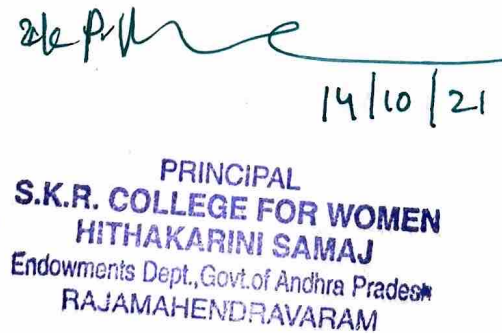 14/10/21
PRINCIPAL
S.K.R. COLLEGE FOR WOMEN
HITHAKARINI SAMAJ
Endowments Dept.,Govt.of Andhra Pradesh
RAJAMAHENDRAVARAM